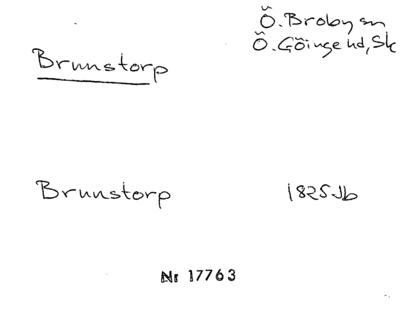 Ö. Broby sn
Ö. Göinge hd, Sk
Brunnstorp
Brunnstorp 1825 Jb
Nr 17763